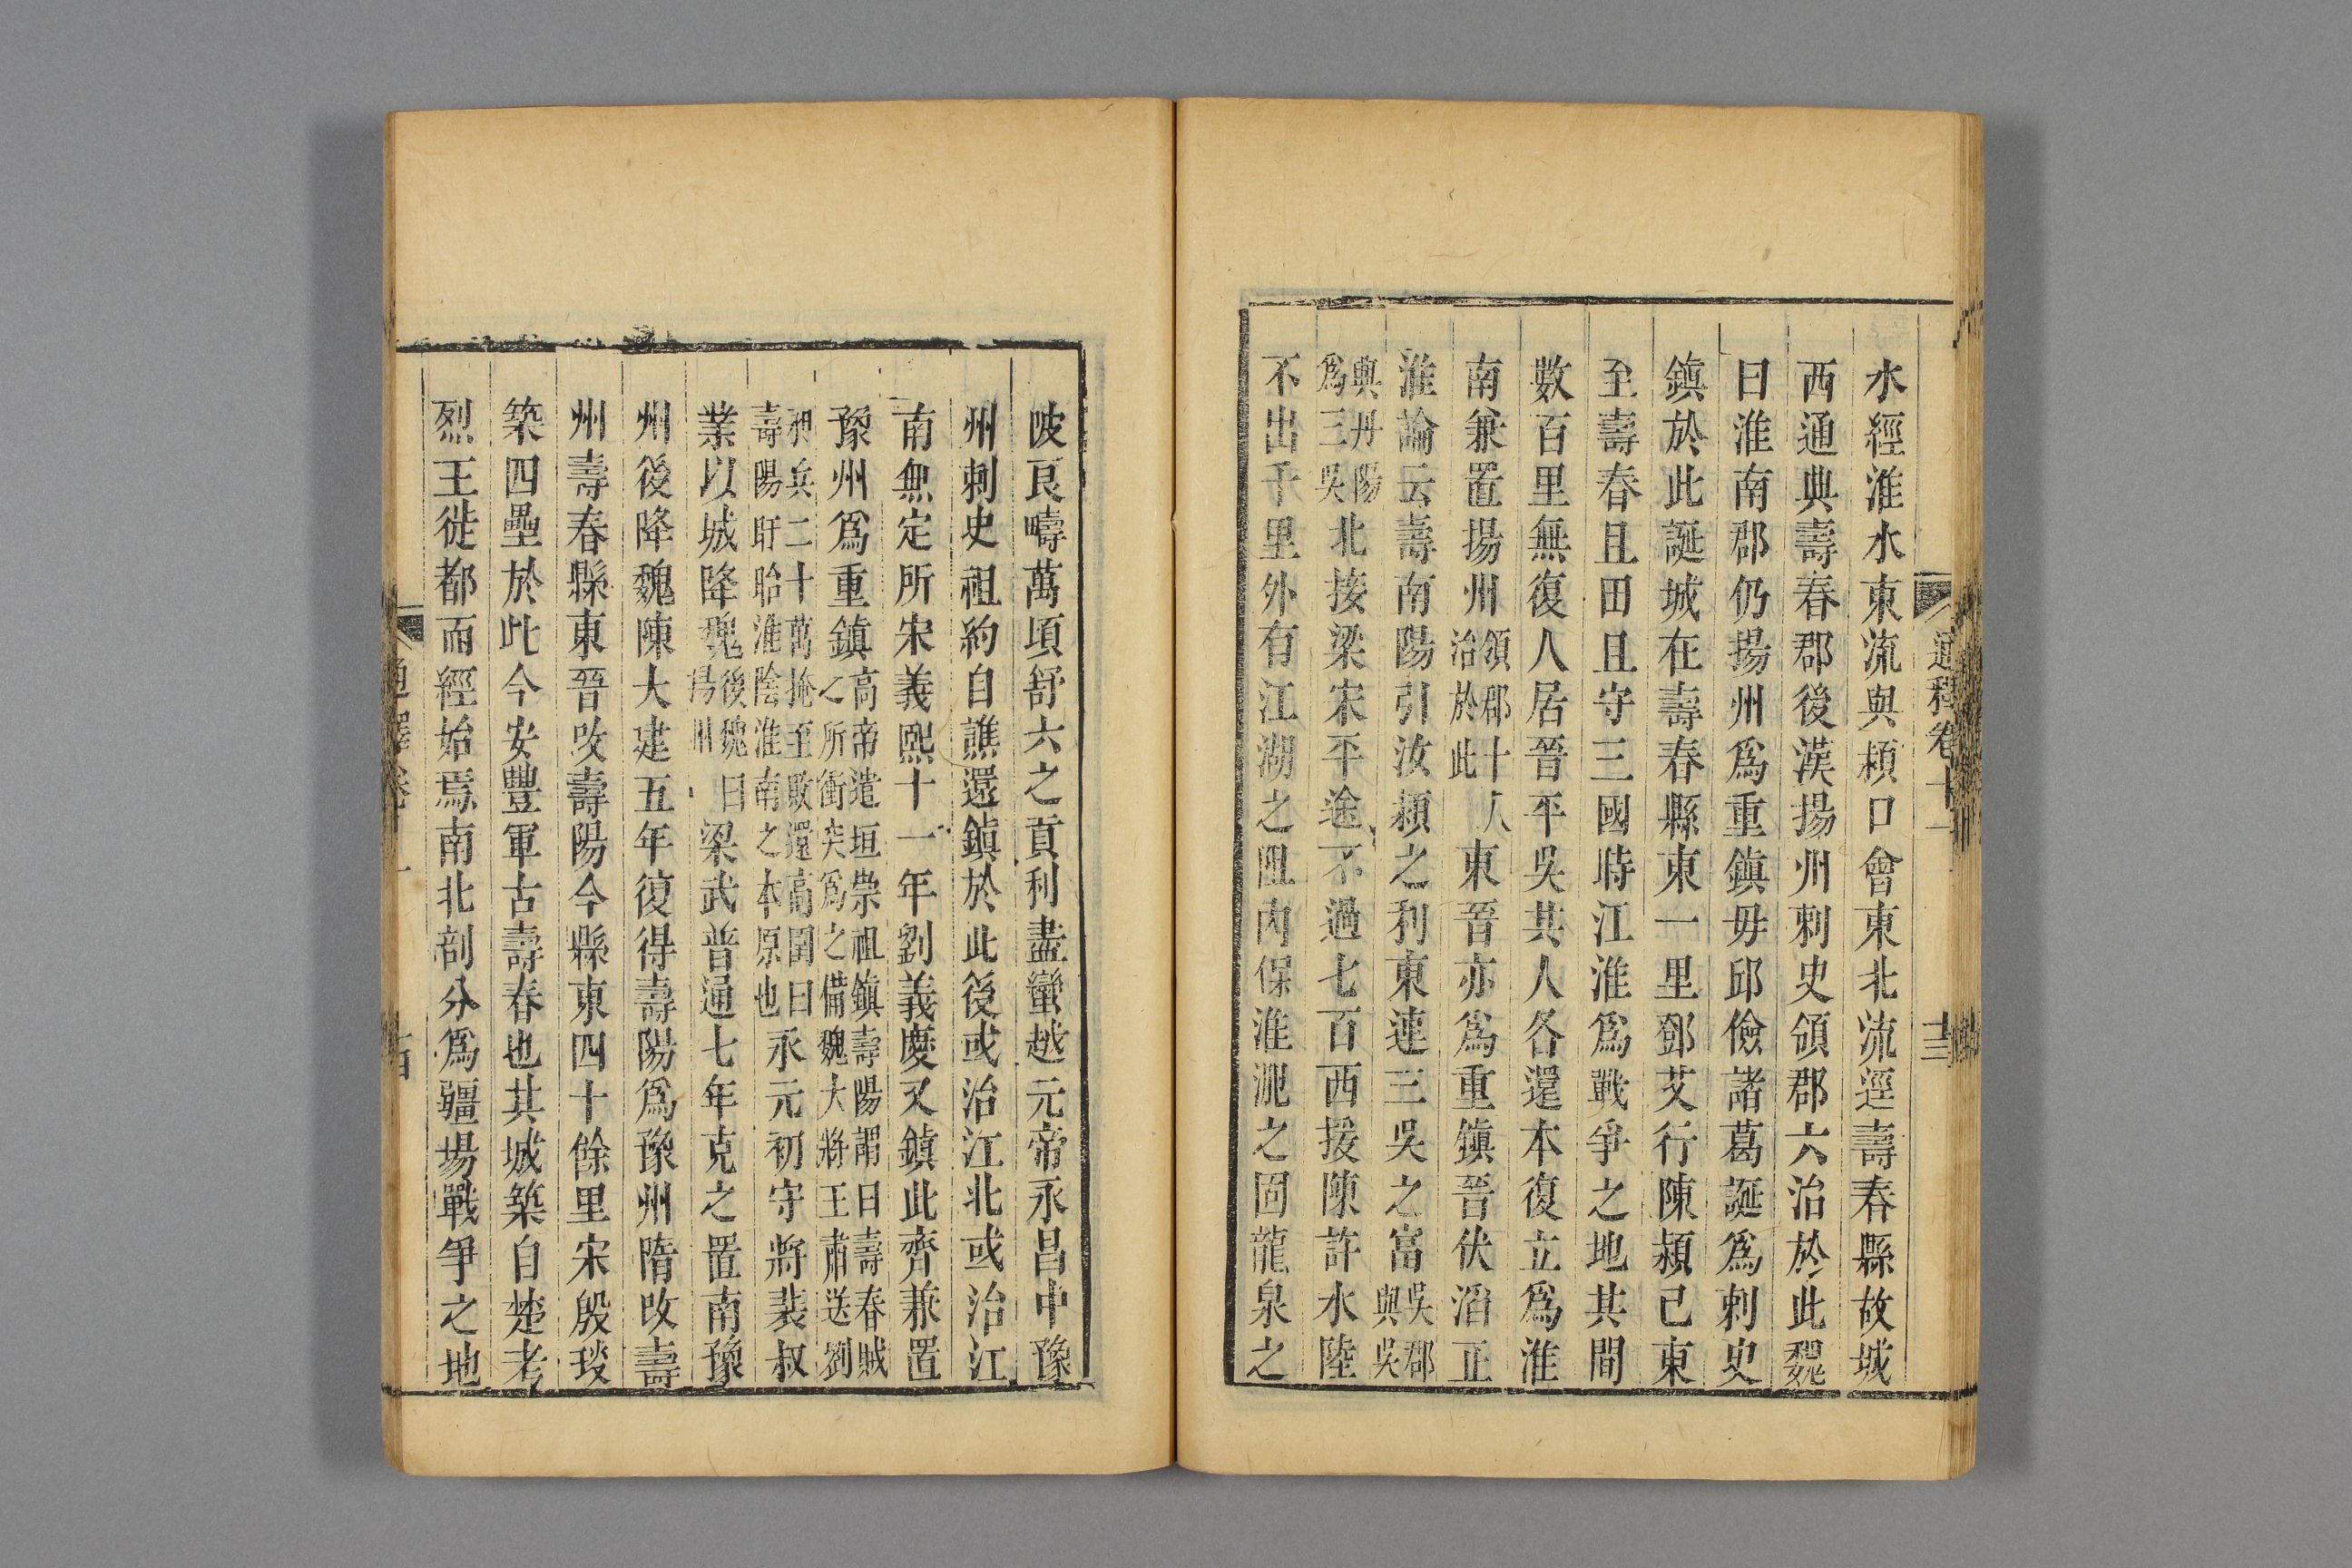 水經淮水東流與潁口會東北流逕壽春縣故城
西通典壽春郡後漢揚州刺史領郡六治於此魏
曰淮南郡仍揚州為重鎮毋邱儉諸葛誕為刺史
鎮於此誕城在壽春縣東一里鄧艾行陳潁已東
至壽春且田且守三國時江淮為戰爭之地其間
數百里無復人居晉平吳其人各還本復立為淮
南兼置揚州領郡十八治於此東晉亦為重鎮晉伏滔正
淮論云壽南陽引汝潁之利東連三吳之富吳郡與吳
與丹陽為三吳北接梁宋平途不過七百西援陳許水陸
不出千里外有江湖之阻內保淮淝之固龍泉之
通釋卷十一
十三
陂良疇萬頃舒六之貢利盡蠻越元帝永昌中豫
州刺史祖約自譙還鎮於此後或治江北或治江
南無定所宋義熙十一年劉義慶又鎮此齊兼置
豫州為重鎮高帝遣垣崇祖鎮壽陽謂曰壽春賊之所衝突為之備魏大將王肅送劉
昶兵二十萬掩至敗還高閭曰壽陽盱眙淮陰淮南之本原也永元初守將裴叔
業以城降魏後魏曰揚州梁武普通七年克之置南豫
州後降魏陳大建五年復得壽陽為豫州隋改壽
州壽春縣東晉改壽陽今縣東四十餘里宋殷琰
築四壘於此今安豐軍古壽春也其城築自楚考
烈王徙都而經始焉南北剖分為疆場戰爭之地